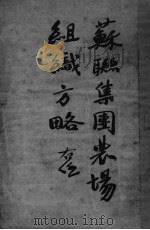 蘇聯集團農場
組織方略